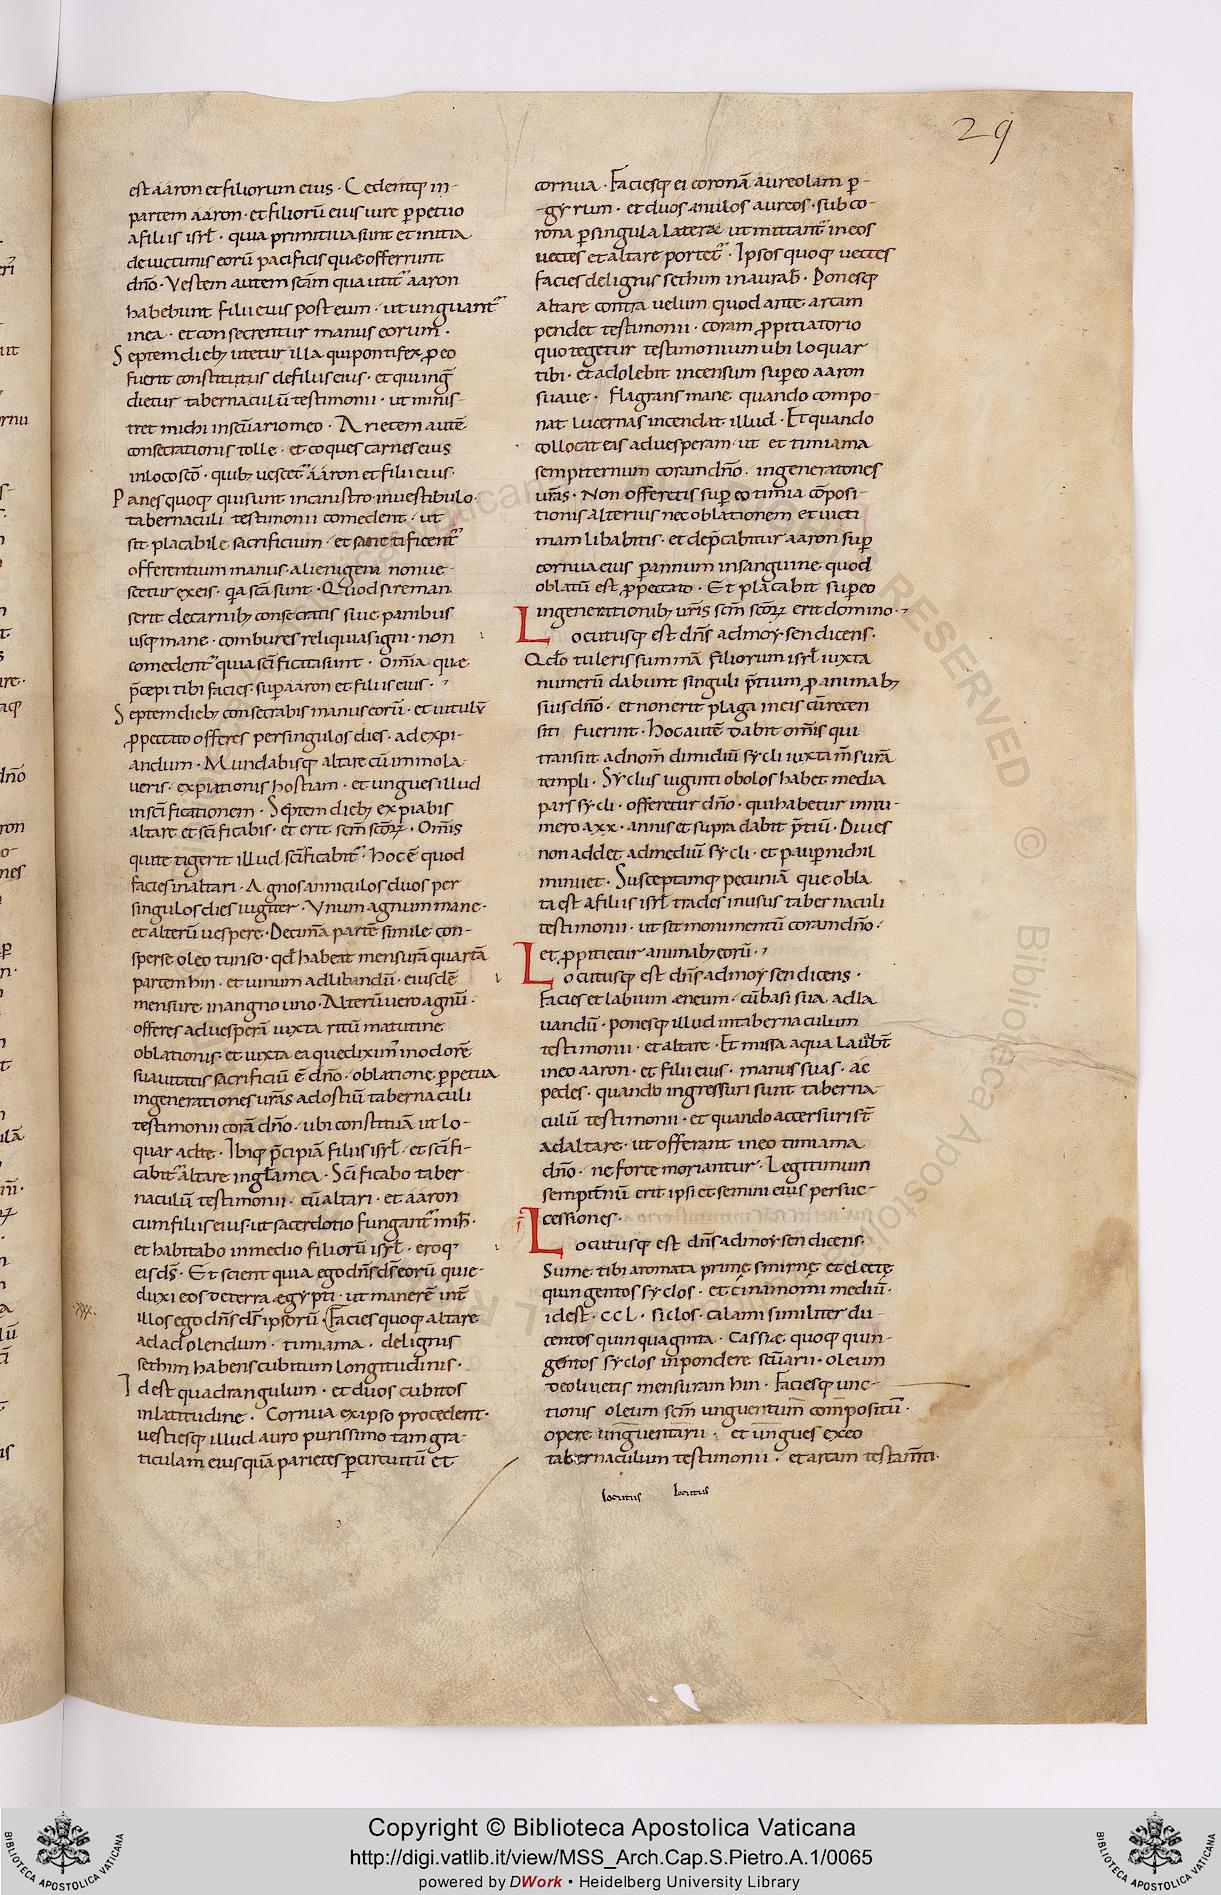 29
est aaron et filiorum eius · Cedentq; in-
partem aaron · et filiorū eius iure ꝑpetuo
a filiis isrl̄ · quia primitiua sunt et initia
de uictimis eorū pacificis quæ offerrunt
dn̄o · Vestem autem scām qua utit᷑ aaron
habebunt filii eius post eum · ut unguant᷑
in ea · et consecrentur manus eorum ·
Septem dieb; utetur illa qui pontifex ꝓ eo
fuerit constitutus de filiis eius · et qui inḡ
dietur tabernaculū testimonii · ut minis-
tret michi in sc̄uario meo · Arietem autē
consecrationis tolle · et coques carnes eius
in loco sc̄o · quib; uescet᷑ aaron et filii eius ·
Panes quoq; qui sunt in canistro · in uestibulo ·
tabernaculi testimonii comedent · ut
sit placabile sacrificium · et sanctificent᷑
offerentium manus · alienigena non ue-
scetur ex eis · q̄a sc̄a sunt · Quod si reman
serit de carnib; consecratis siue panibus
usq; mane · combures reliquias igni · non
comedent᷑ quia sc̄ificata sunt · Om̄ia quæ
p̄cepi tibi facies · suꝑ aaron et filiis eius ·
Septem dieb; consecrabis manus eorū · et uitulū
ꝓ peccato offeres per singulos dies · ad expi-
andum · Mundabisq; altare cū immola
ueris · expiationis hostiam · et ungues illud
in sc̄ificationem · Septem dieb; expiabis
altare et sc̄ificabis · et erit sc̄m sc̄oꝝ · Om̄is
qui tetigerit illud sc̄ificabit᷑ · hoc ē quod
facies in altari · Agnos anniculos duos per
singulos dies iugiter · Vnum agnum mane ·
et alterū uespere · Decimā partē simile con-
sperse oleo tunso · qd̄ habeat mensurā quartā
partem hin · et uinum ad libandū · eiusdē
mensure in agno uno · Alterū uero agnū ·
offeres ad uesperā iuxta ritū matutine
oblationis · et iuxta ea que diximꝰ in odorē
suauitatis sacrificiū ē dn̄o · oblatione ꝑpetua
in generationes ur̄as ad ostiū tabernaculi
testimonii corā dn̄o · ubi constituā ut lo-
quar ad te · Ibiq; p̄cipiā filiis isrl̄ · et sc̄ifi-
cabit᷑ altare in gl̄a mea · Sc̄ificabo taber
naculū testimonii · cū altari · et aaron
cum filiis eius · ut sacerdotio fungant᷑ mih̄ ·
et habitabo in medio filiorū isrl̄ · eroq;
eis ds̄ · Et scient quia ego dn̄s ds̄ eorū qui e-
duxi eos de terra ægypti · ut manerē int̄
illos ego dn̄s ds̄ ipsorū · Facies quoq; altare
ad adolendum · timiama · de lignis
sethim habens cubitum longitudinis ·
Idest quadrangulum · et duos cubitos
in latitudine · Cornua ex ipso procedent ·
uestiesq; illud auro purissimo tam gra-
ticulam eius quā parietes ꝑ circuitū et
cornua · Faciesq; ei coronā aureolam ꝑ-
-gyrum · et duos anulos aureos · sub co-
rona ꝑ singula latera ut mittant᷑ in eos
uectes et altare portet᷑ · Ipsos quoq; uectes
facies de lignis sethim inaurab̄ · Ponesq;
altare contra uelum quod ante arcam
pendet testimonii · coram ꝓpitiatorio
quo tegetur testimonium ubi loquar
tibi · et adolebit incensum suꝑ eo aaron
suaue · Flagrans mane quando compo-
nat lucernas incendat illud · Et quando
collocat eas ad uesperam · ut et timiama
sempiternum coram dn̄o · in generatones
ur̄as · Non offeretis suꝑ eo timia cōposi-
tionis alterius nec oblationem et uicti
mam libabitis · et dep̄cabitur aaron suꝑ
cornua eius ꝑ annum in sanguine quod
oblatū est ꝓ peccato · Et placabit suꝑ eo
in generationib; ur̄is sc̄m sc̄oꝝ erit domino ·
Locutusq; est dn̄s ad moysen dicens ·
Qdo tuleris summā filiorum isrl̄ iuxta
numerū dabunt singuli p̄tium ꝓ animab;
suis dn̄o · et non erit plaga in eis cū recen
siti fuerint · Hoc autē dabit om̄is qui
transit ad nom̄ dimidiū sycli iuxta m̄surā
templi · Syclus uiginti obolos habet media
pars sycli · offeretur dn̄o · qui habetur in nu-
mero a xx · annis et supra dabit p̄tiū · Diues
non addet ad mediū sycli · et pauꝑ nichil
minuet · Susceptamq; pecuniā que obla
ta est a filiis isrl̄ trades in usus tabernaculi
testimonii · ut sit monimentū coram dn̄o ·
et ꝓpitietur animab; eorū ·
Locutusq; est dn̄s ad moysen dicens ·
Facies et labium æneum · cū basi sua ad la
uandū · ponesq; illud in tabernaculum
testimonii · et altare · Et missa aqua lauab̄t
in eo aaron · et filii eius · manus suas · ac
pedes · quando ingressuri sunt taberna-
culū testimonii · et quando accersuri st̄
ad altare · ut offerant in eo timiama
dn̄o · ne forte moriantur · Legitimum
sempit̄nū erit ipsi et semini eius per suc-
cessiones ·
Locutusq; est dn̄s ad moysen dicens ·
Sume tibi aromata primę smirnę et electę
quingentos syclos · et cinamomi mediū ·
idest · CCL · siclos · calami similiter du-
centos quinquaginta · Cassiæ quoq; quin-
gentos syclos in pondere sc̄uarii · oleum
de oliuetis mensuram hin · Faciesq; unc-
tionis oleum sc̄m unguentum compositū ·
opere unguentarii · et ungues ex eo
tabernaculum testimonii · et arcam testam̄ti ·
locutus locutus
Copyright © Biblioteca Apostolica Vaticana
http://digi.vatlib.it/view/MSS_Arch.Cap.S.Pietro.A.1/0065
powered by DWork • Heidelberg University Library